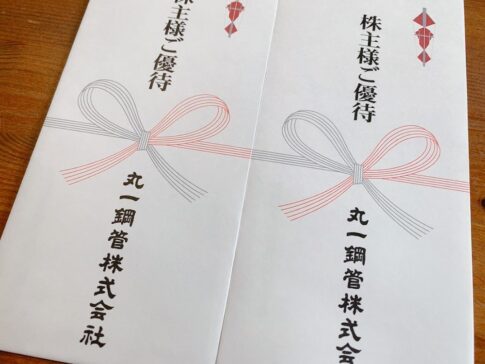 株主様ご優待
丸一鋼管株式会社
株主様ご優待
丸一鋼管株式会